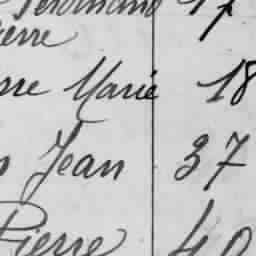 Ferdinand 17
Pierre
Marie 18
Jean 37
Pierre 40